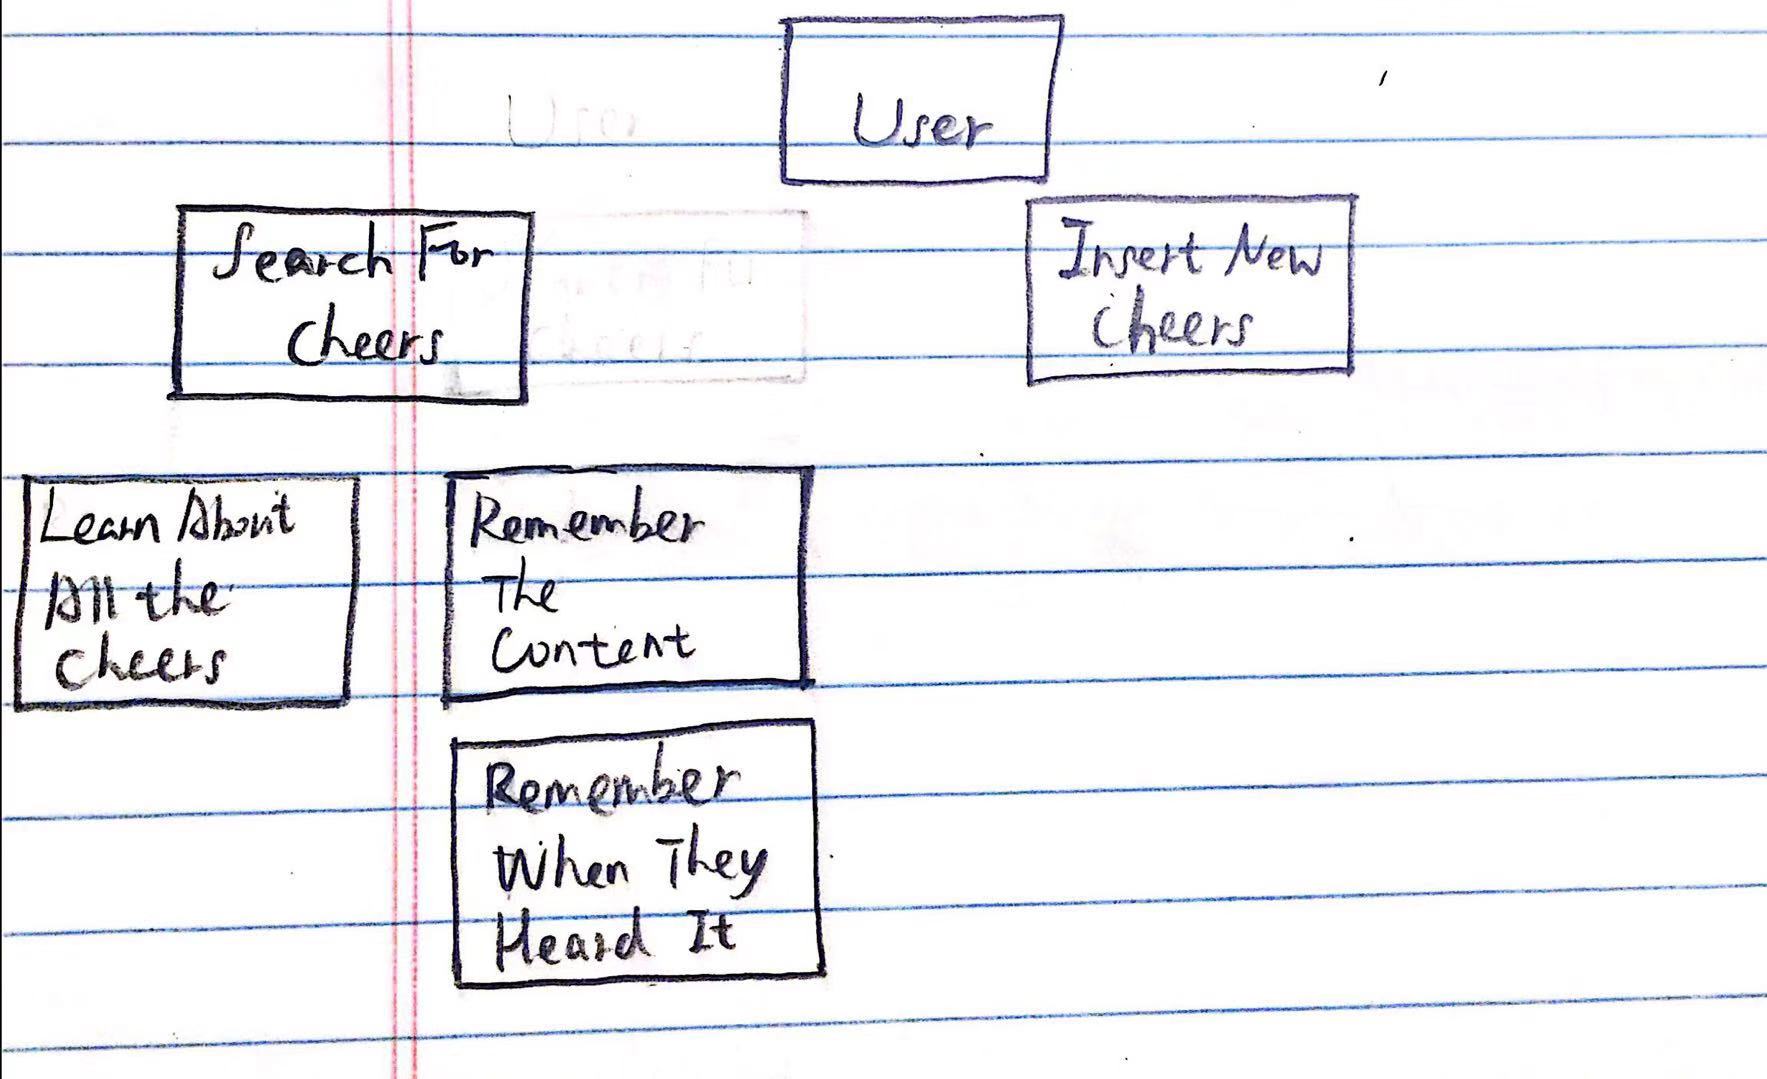 User
Search For
Cheers
Insert New
Cheers
Learn About
All the
Cheers
Remember
The
Content
Remember
When They
Heard It